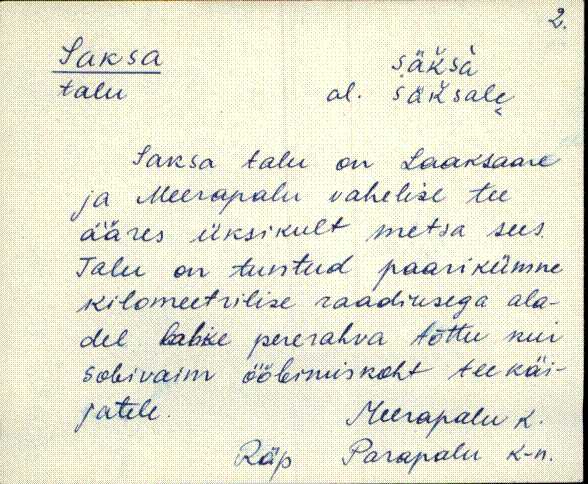 2.
Saksa säksä
talu al. säksale̮
Saksa talu on Laaksaare
ja Meerapalu vahelise tee
ääres üksikult metsa sees.
Talu on tuntud paarikümne
kilomeetrilise raadiusega ala-
del lahke pererahva tõttu kui
sobivaim ööbimiskoht teekäi-
jatele.
Meerapalu k.
Räp Parapalu k-n.